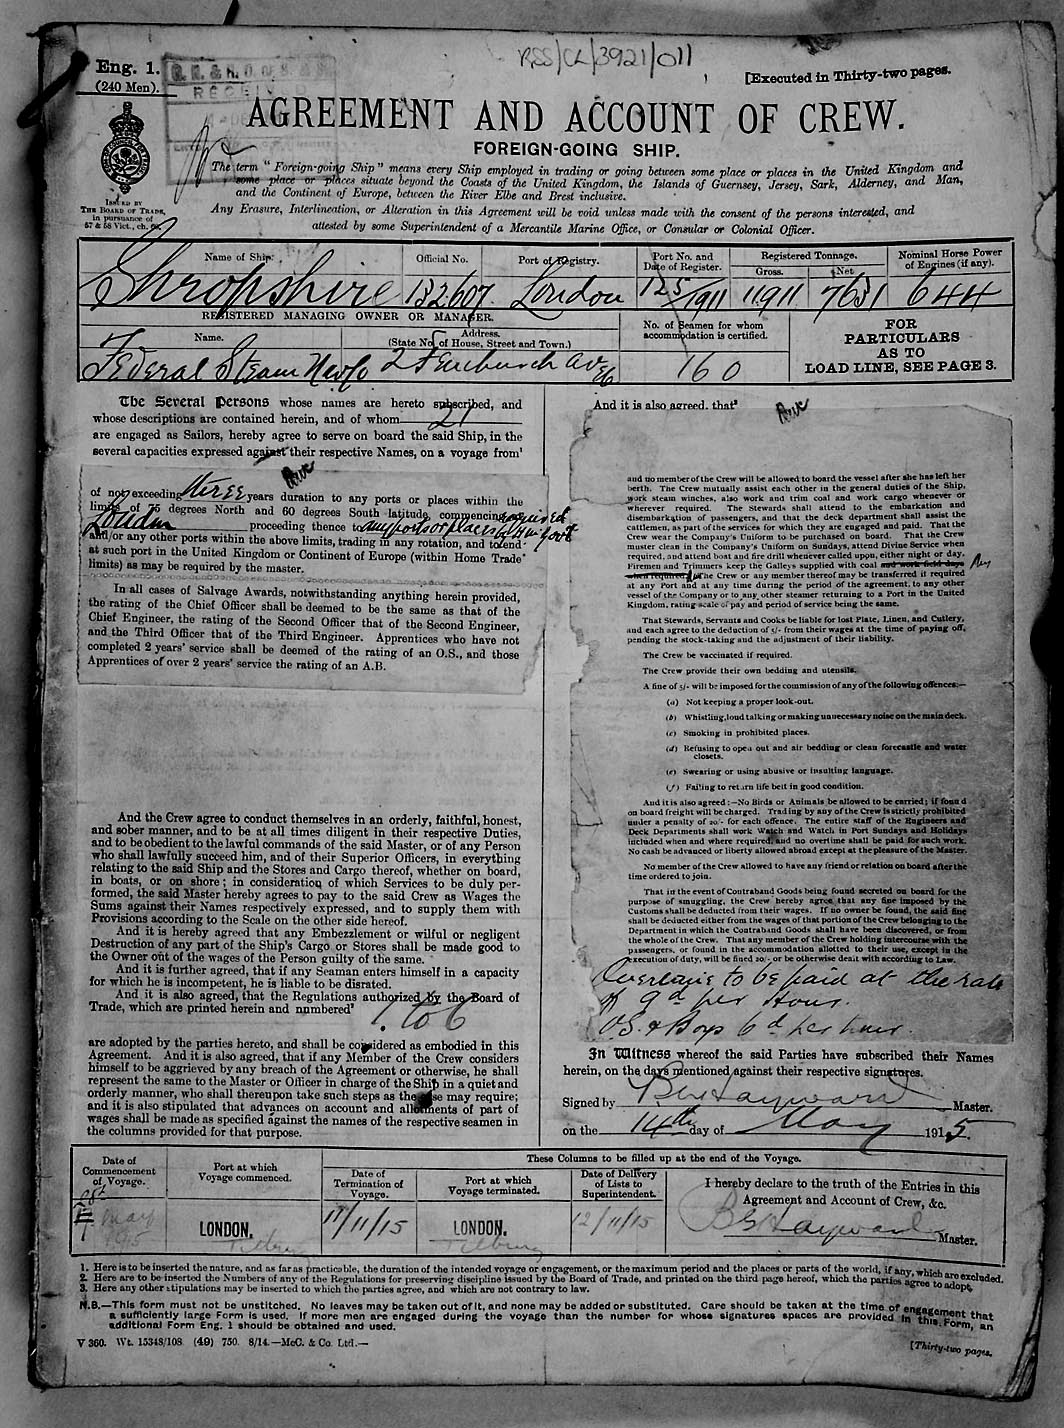 RSS/CL/3921/011
Eng. 1.
(240 Men).
RECEIVED
[Executed in Thirty-two pages.
AGREEMENT AND ACCOUNT OF CREW.
FOREIGN-GOING SHIP.
ISSUED BY
THE BOARD OF TRADE,
in pursuance of
57 & 58 Vict., ch. 60.
The term "Foreign-going Ship" means every Ship employed in trading or going between some place or places in the United Kingdom and
some place or places situate beyond the Coasts of the United Kingdom, the Islands of Guernsey, Jersey, Sark, Alderney, and Man,
and the Continent of Europe, between the River Elbe and Brest inclusive.
Any Erasure, Interlineation, or Alteration in this Agreement will be void unless made with the consent of the persons interested, and
attested by some Superintendent of a Mercantile Marine Office, or Consular or Colonial Officer.
Name of Ship. Official No. Port of Registry. Port No. and Date of Register. Registered Tonnage. Gross. Net Nominal Horse Power of Engines (if any).
Shropshire 132607 London 125/1911 11911 7631 644
REGISTERED MANAGING OWNER OR MANAGER.
Name. Address. (State No. of House, Street and Town.)
No. of Seamen for whom accommodation is certified.
FOR
PARTICULARS
AS TO
LOAD LINE, SEE PAGE 3.
Federal Steam Nav Co 2 Fenchurch Av EC 160
The Several Persons whose names are hereto subscribed, and
whose descriptions are contained herein, and of whom 21
are engaged as Sailors, hereby agree to serve on board the said Ship, in the
several capacities expressed against their respective Names, on a voyage from¹
of not exceeding three years duration to any ports or places within the
limits of 75 degrees North and 60 degrees South latitude, commencing
London proceeding thence to any ports or places required by H.M. Govt
and/or any other ports within the above limits, trading in any rotation, and to end
at such port in the United Kingdom or Continent of Europe (within Home Trade
limits) as may be required by the master.
In all cases of Salvage Awards, notwithstanding anything herein provided,
the rating of the Chief Officer shall be deemed to be the same as that of the
Chief Engineer, the rating of the Second Officer that of the Second Engineer,
and the Third Officer that of the Third Engineer. Apprentices who have not
completed 2 years' service shall be deemed of the rating of an O.S., and those
Apprentices of over 2 years' service the rating of an A.B.
And the Crew agree to conduct themselves in an orderly, faithful, honest,
and sober manner, and to be at all times diligent in their respective Duties,
and to be obedient to the lawful commands of the said Master, or of any Person
who shall lawfully succeed him, and of their Superior Officers, in everything
relating to the said Ship and the Stores and Cargo thereof, whether on board,
in boats, or on shore; in consideration of which Services to be duly per-
formed, the said Master hereby agrees to pay to the said Crew as Wages the
Sums against their Names respectively expressed, and to supply them with
Provisions according to the Scale on the other side hereof.
And it is hereby agreed that any Embezzlement or wilful or negligent
Destruction of any part of the Ship's Cargo or Stores shall be made good to
the Owner out of the wages of the Person guilty of the same.
And it is further agreed, that if any Seaman enters himself in a capacity
for which he is incompetent, he is liable to be disrated.
And it is also agreed, that the Regulations authorized by the Board of
Trade, which are printed herein and numbered² 1 to 6
are adopted by the parties hereto, and shall be considered as embodied in this
Agreement. And it is also agreed, that if any Member of the Crew considers
himself to be aggrieved by any breach of the Agreement or otherwise, he shall
represent the same to the Master or Officer in charge of the Ship in a quiet and
orderly manner, who shall thereupon take such steps as the case may require;
and it is also stipulated that advances on account and allotments of part of
wages shall be made as specified against the names of the respective seamen in
the columns provided for that purpose.
And it is also agreed, that³
and no member of the Crew will be allowed to board the vessel after she has left her
berth. The Crew mutually assist each other in the general duties of the Ship,
work steam winches, also work and trim coal and work cargo whenever or
wherever required. The Stewards shall attend to the embarkation and
disembarkation of passengers, and that the deck department shall assist the
cattlemen, as part of the services for which they are engaged and paid. That the
Crew wear the Company's Uniform to be purchased on board. That the Crew
muster clean in the Company's Uniform on Sundays, attend Divine Service when
required, and attend boat and fire drill whenever called upon, either night or day.
Firemen and Trimmers keep the Galleys supplied with coal and work field days
when required. The Crew or any member thereof may be transferred if required
at any Port and at any time during the period of the agreement, to any other
vessel of the Company or to any other steamer returning to a Port in the United
Kingdom, rating scale of pay and period of service being the same.
That Stewards, Servants and Cooks be liable for lost Plate, Linen, and Cutlery,
and each agree to the deduction of 5/- from their wages at the time of paying off,
pending the stock-taking and the adjustment of their liability.
The Crew be vaccinated if required.
The Crew provide their own bedding and utensils.
A fine of 5/- will be imposed for the commission of any of the following offences:—
(a) Not keeping a proper look-out.
(b) Whistling, loud talking or making unnecessary noise on the main deck.
(c) Smoking in prohibited places.
(d) Refusing to open out and air bedding or clean forecastle and water
closets.
(e) Swearing or using abusive or insulting language.
(f) Failing to return life belt in good condition.
And it is also agreed:—No Birds or Animals be allowed to be carried; if found
on board freight will be charged. Trading by any of the Crew is strictly prohibited
under a penalty of 20/- for each offence. The entire staff of the Engineers and
Deck Departments shall work Watch and Watch in Port Sundays and Holidays
included when and where required, and no overtime shall be paid for such work.
No cash be advanced or liberty allowed abroad except at the pleasure of the Master.
No member of the Crew allowed to have any friend or relation on board after the
time ordered to join.
That in the event of Contraband Goods being found secreted on board for the
purpose of smuggling, the Crew hereby agree that any fine imposed by the
Customs shall be deducted from their wages. If no owner be found, the said fine
shall be deducted either from the wages of that portion of the Crew belonging to the
Department in which the Contraband Goods shall have been discovered, or from
the whole of the Crew. That any member of the Crew holding intercourse with the
passengers, or found in the accommodation allotted to their use, except in the
execution of duty, will be fined 20/- or be otherwise dealt with according to Law.
Overtime to be paid at the rate
of 9d per hour.
O.S. & Boys 6d per hour.
In Witness whereof the said Parties have subscribed their Names
herein, on the days mentioned against their respective signatures.
Signed by B Hayward Master.
on the 14th day of May 1915.
Date of Commencement of Voyage. Port at which Voyage commenced. These Columns to be filled up at the end of the Voyage.
Date of Termination of Voyage. Port at which Voyage terminated. Date of Delivery of Lists to Superintendent.
I hereby declare to the truth of the Entries in this
Agreement and Account of Crew, &c.
May 1915 LONDON. Tilbury 11/11/15 LONDON. Tilbury 12/11/15 Hayward Master.
1. Here is to be inserted the nature, and as far as practicable, the duration of the intended voyage or engagement, or the maximum period and the places or parts of the world, if any, which are excluded.
2. Here are to be inserted the Numbers of any of the Regulations for preserving discipline issued by the Board of Trade, and printed on the third page hereof, which the parties agree to adopt.
3. Here any other stipulations may be inserted to which the parties agree, and which are not contrary to law.
N.B.—This form must not be unstitched. No leaves may be taken out of it, and none may be added or substituted. Care should be taken at the time of engagement that
a sufficiently large Form is used. If more men are engaged during the voyage than the number for whose signatures spaces are provided in this Form, an
additional Form Eng. 1 should be obtained and used.
V 360. Wt. 15348/108 (49) 750. 8/14.—McC. & Co. Ltd.—
[Thirty-two pages.